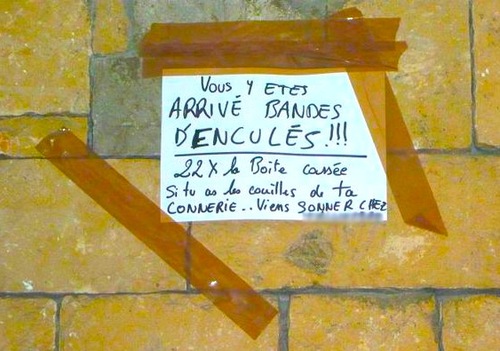 Vous y ETES
ARRIVÉ BANDES
D'ENCULÉS.!!!
22 X la Boite cassée
Si tu as les couilles de ta
CONNERIE.. Viens SONNER CHEZ